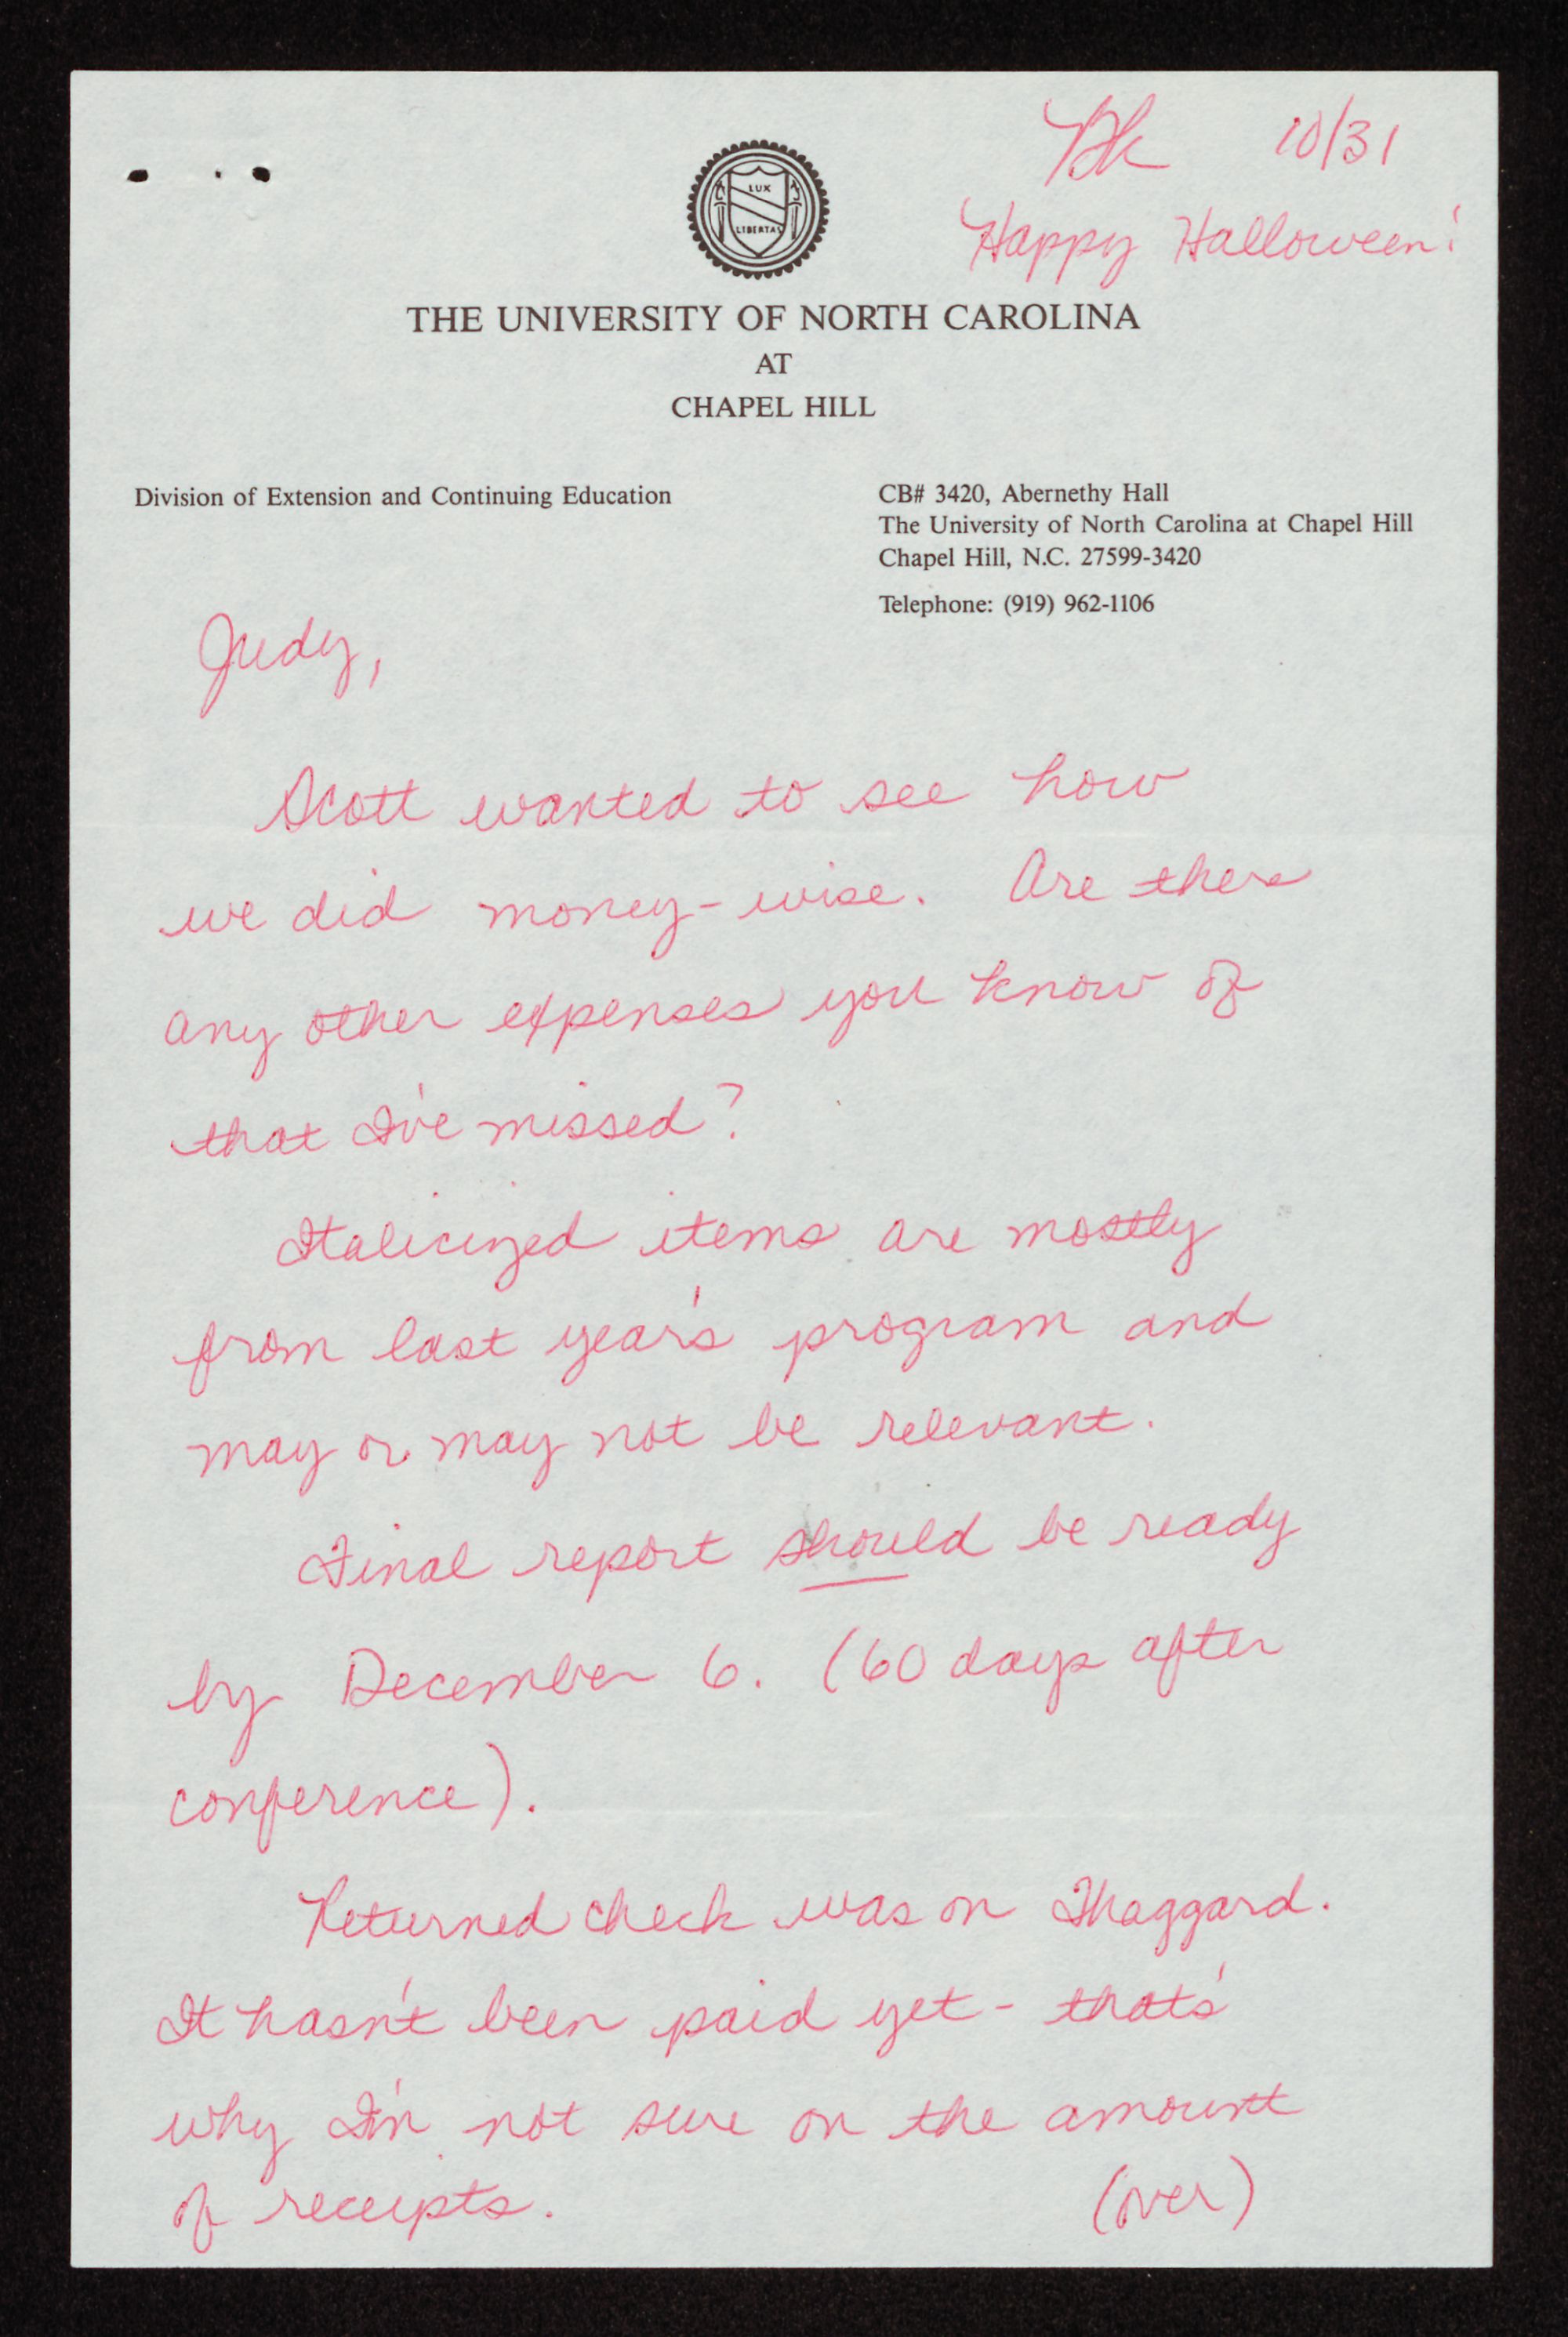 Bk 10/31
Happy Halloween!
LUX
LIBERTAS
THE UNIVERSITY OF NORTH CAROLINA
AT
CHAPEL HILL
Division of Extension and Continuing Education
CB# 3420, Abernethy Hall
The University of North Carolina at Chapel Hill
Chapel Hill, N.C. 27599-3420
Telephone: (919) 962-1106
Judy,
Scott wanted to see how
we did money-wise. Are there
any other expenses you know of
that I've missed?
Italicized items are mostly
from last year's program and
may or may not be relevant.
Final report should be ready
by December 6. (60 days after
conference).
Returned check was on Thaggard.
It hasn't been paid yet - that's
why I'm not sure on the amount
of receipts. (over)